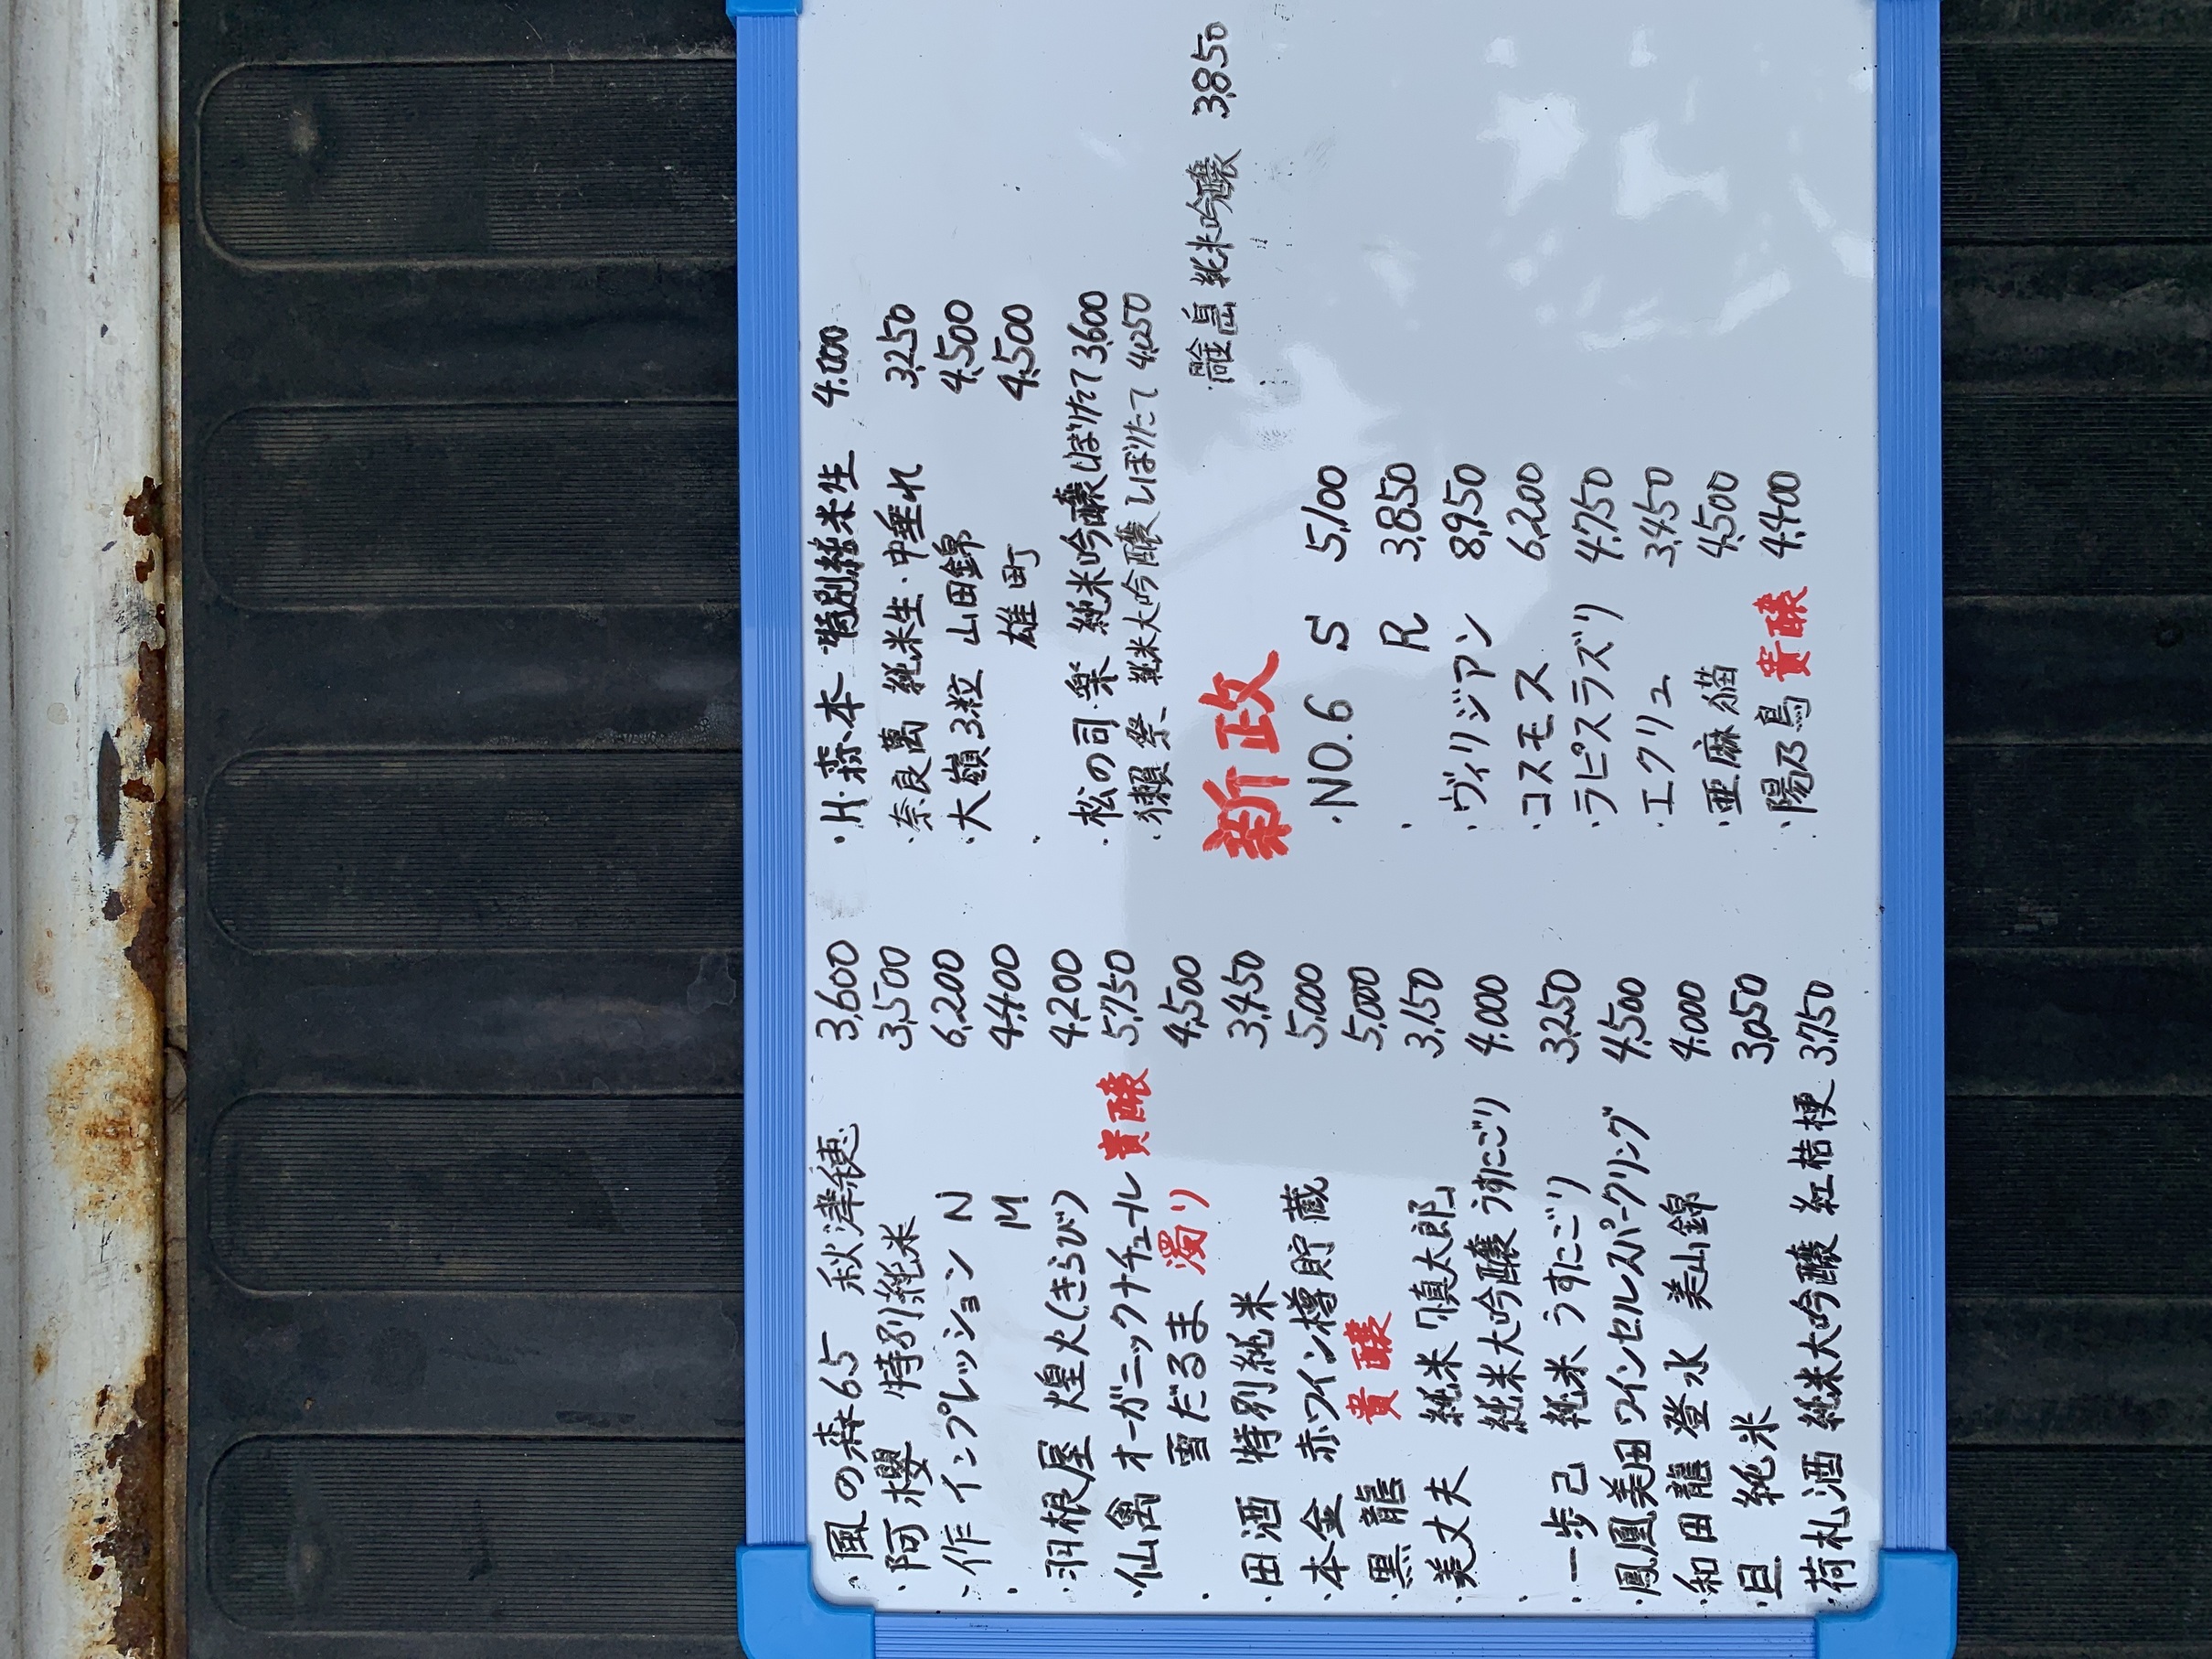 ・風の森65 秋津穂 3,600
・阿櫻 特別純米 3,500
・作 インプレッション N 6,200
・ M 4,400
・羽根屋 煌火(きらび) 4,200
・仙禽 オーガニックナチュール 貴醸 5,750
・ 雪だるま 濁り 4,500
・田酒 特別純米 3,450
・本金 赤ワイン樽貯蔵 5,000
・黒龍 貴醸 5,000
・美丈夫 純米「慎太郎」 3,150
・ 純米大吟醸 うすにごり 4,000
・一歩己 純米 うすにごり 3,250
・鳳凰美田 ワインセルスパークリング 4,500
・和田龍 登水 美山錦 4,000
・旦 純米 3,050
・荷札酒 純米大吟醸 紅桔梗 3,750
・H・森本 特別純米生 4,000
・奈良萬 純米生・中垂れ 3,250
・大嶺3粒 山田錦 4,500
・ 雄町 4,500
・松の司・楽 純米吟醸 しぼりたて 3,600
・獺祭 純米大吟醸 しぼりたて 4,050
・ 純米吟醸 3,850
新政
・NO.6 S 5,100
・ R 3,850
・ヴィリジアン 8,950
・コスモス 6,200
・ラピスラズリ 4,750
・エクリュ 3,450
・亜麻猫 4,500
・陽乃鳥 貴醸 4,400